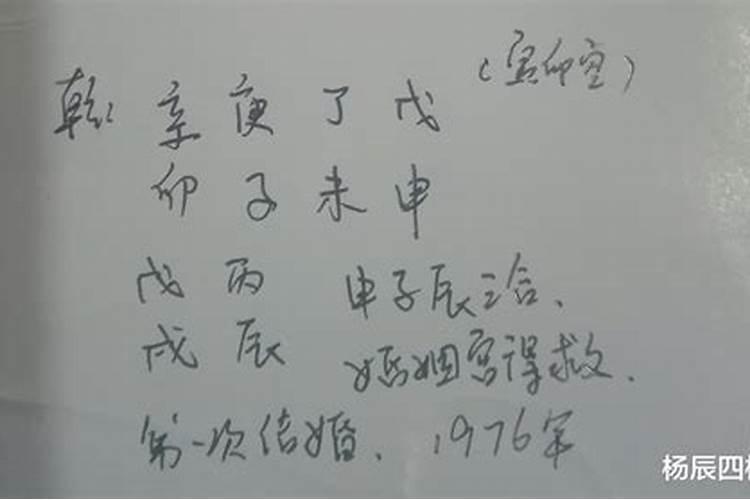 (寅卯空)
乾: 辛 庚 丁 戊
卯 子 未 申
戊 丙 申子辰三合、
戌 辰 婚姻宫得救.
第一次结婚、1976年
杨辰四柱